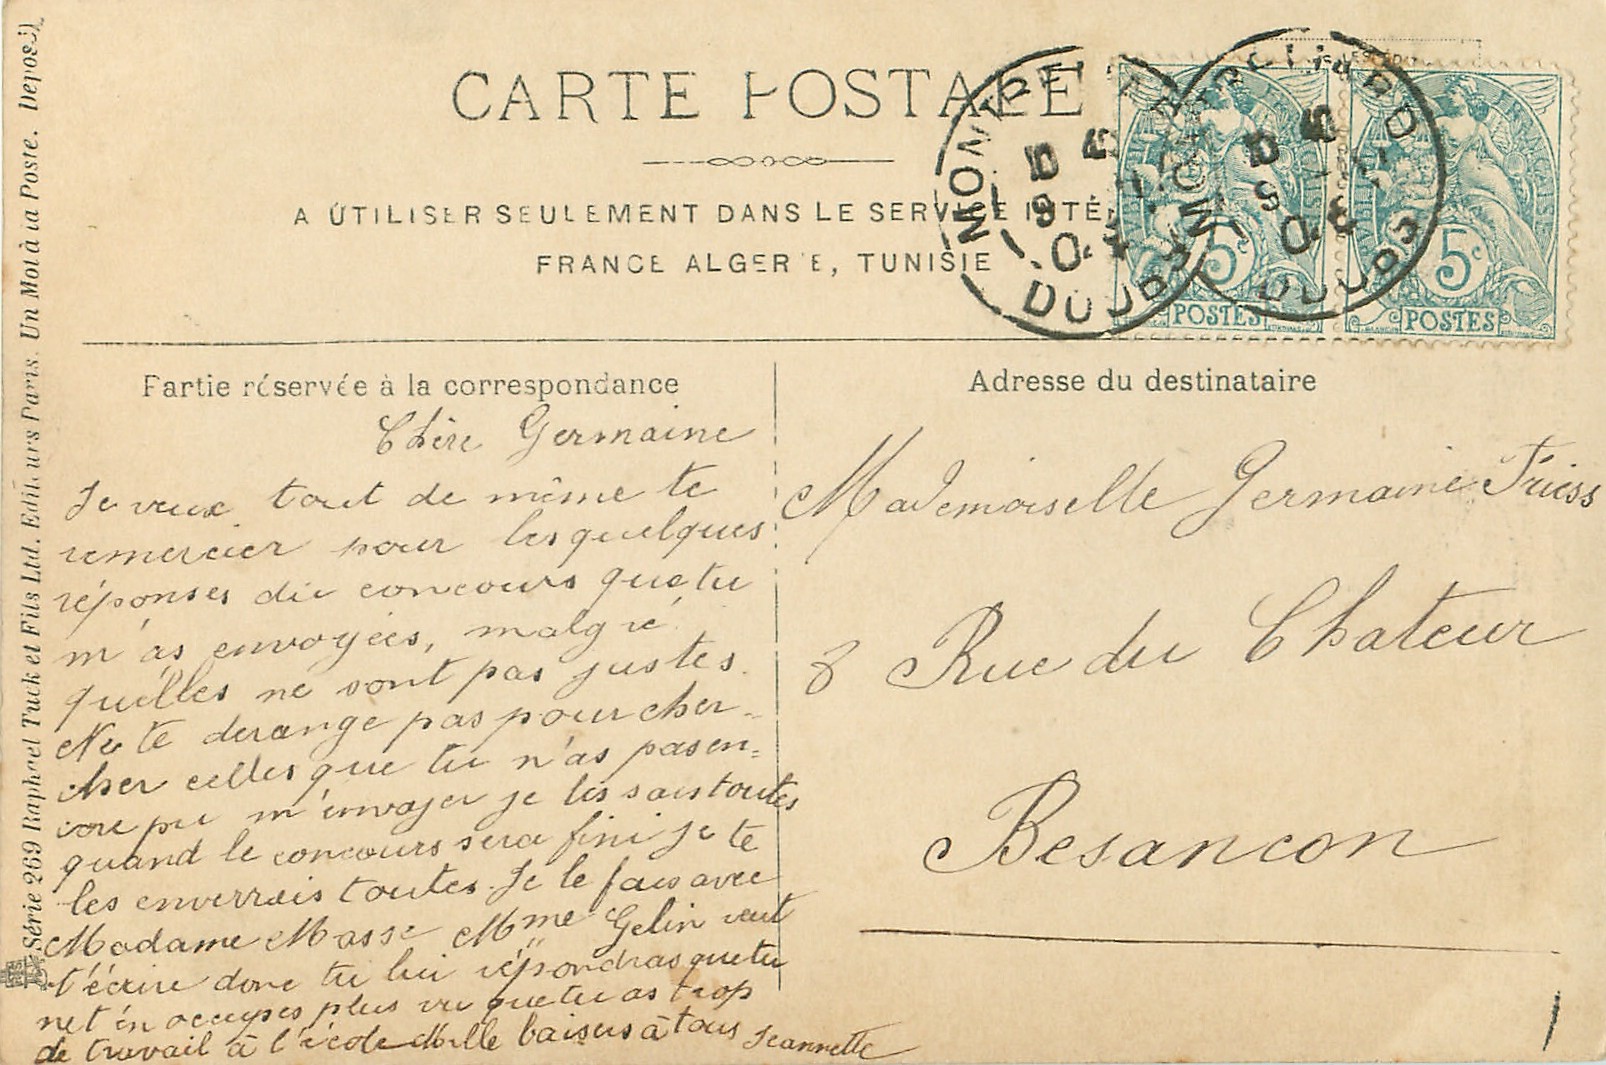 CARTE POSTALE
A UTILISER SEULEMENT DANS LE SERVICE INTÉ
FRANCE ALGERIE, TUNISIE
MONTBELIARD
DOUBS
MONTBELIARD
DOUBS
5c
POSTES
5c
POSTES
Partie réservée à la correspondance
Chère Germaine
Je veux tout de même te
remercier pour les quelques
réponses du concours que tu
m'as envoyées, malgré
qu'elles ne sont pas justes.
Ne te derange pas pour cher-
cher celles que tu n'as pas en=
core pu m'envoyer je les sais toutes
quand le concours sera fini je te
les enverrais toutes. Je le fais avec
Madame Masse Mme Gelin veut
t'écrire donc tu lui répondras que tu
net én occupes plus vu que tu as trop
de travail à l'école Mille baisers à tous Jeannette
Adresse du destinataire
Mademoiselle Germaine Friess
8 Rue du Chateur
Besancon
Série 269 Raphael Tuck et Fils Ltd. Editeurs Paris. Un Mot à la Poste. Deposé)